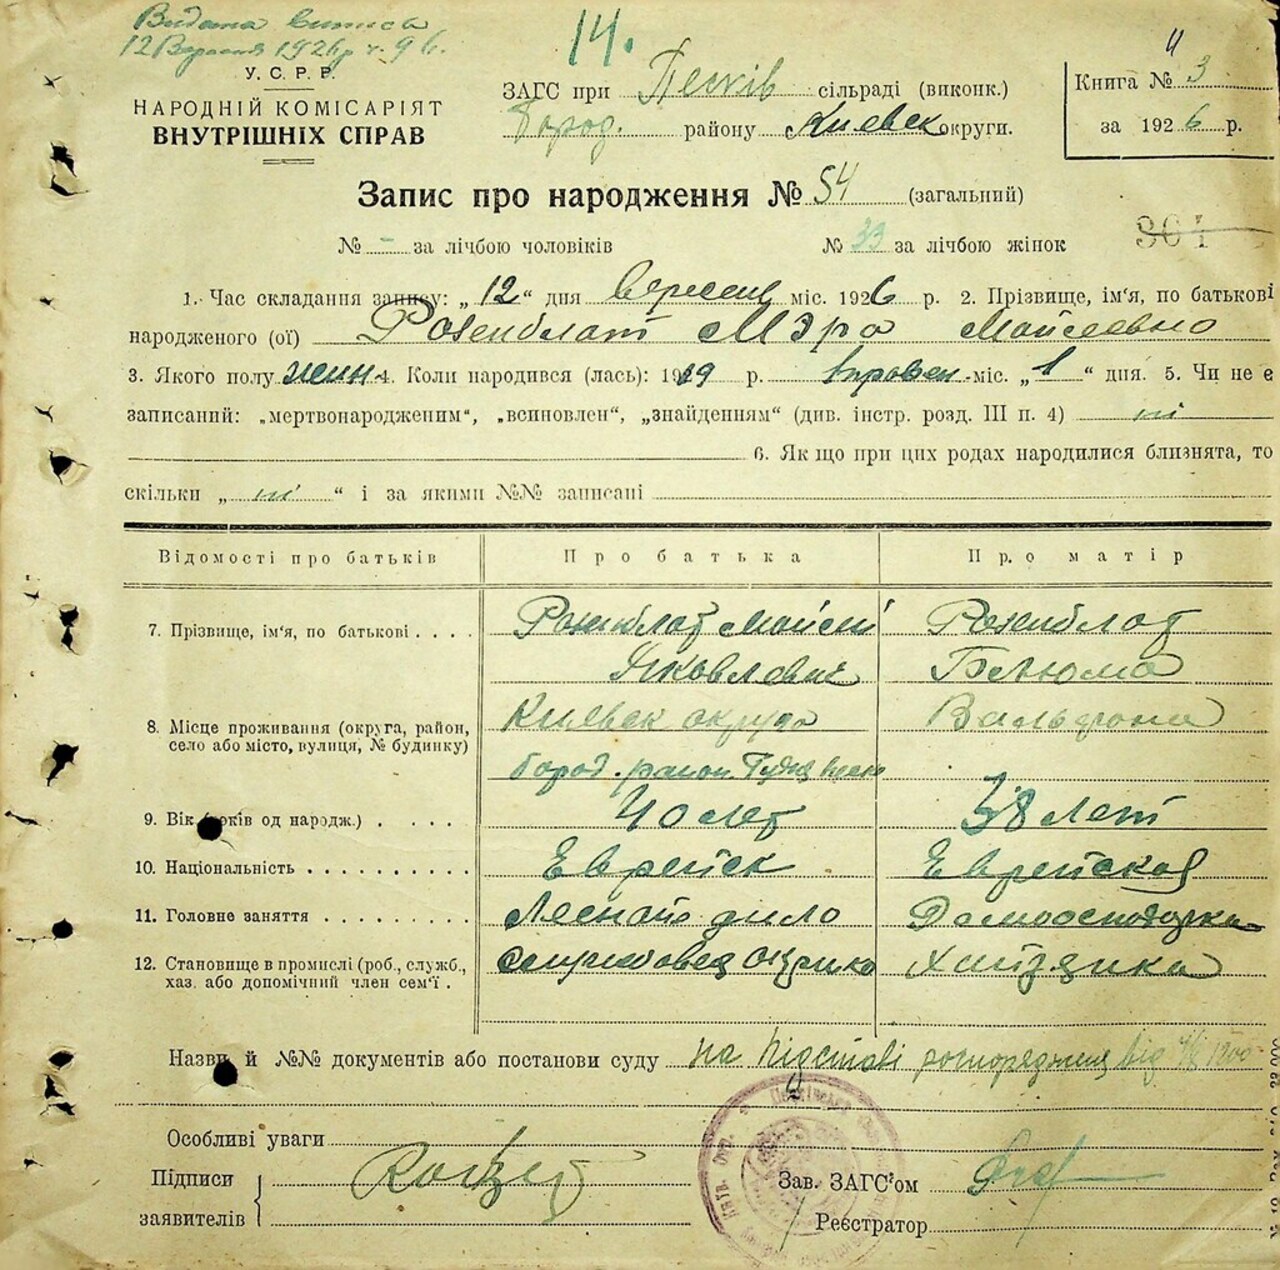 Видана виписа
12 Вересня 1926 р. ч. 96.
14.
У. С. Р. Р.
НАРОДНІЙ КОМІСАРІЯТ
ВНУТРІШНІХ СПРАВ
ЗАГС при Песків сільраді (виконк.)
Город. району Киевск округи.
Книга № 3
за 1926 р.
Запис про народження № 54 (загальний)
№ - за лічбою чоловіків № 33 за лічбою жінок
304
1. Час складання запису: „12“ дня Вересня міс. 1926 р. 2. Прізвище, ім'я, по батькові
народженого (ої) Розенблат Мэра Мойсеевно
3. Якого полу жин 4. Коли народився (лась): 1919 р. міс. „1“ дня. 5. Чи не є
записаний: „мертвонародженим“, „всиновлен“, „знайденням“ (див. інстр. розд. III п. 4) ні
6. Як що при цих родах народилися близнята, то
скільки „ ні “ і за якими №№ записані
Відомості про батьків Про батька Про матір
7. Прізвище, ім'я, по батькові . . . . Розенблат Мойсей Розенблат
Яковлевич Блюма
8. Місце проживання (округа, район, Киевск округа Вальфовна
село або місто, вулиця, № будинку)
Город. район
9. Вік (років од народж.) . . . . 40 лет 38 лет
10. Національність . . . . . . . . . . Еврейск Еврейская
11. Головне заняття . . . . . . . . . Лесное дило Домогосподарка
12. Становище в промислі (роб., служб., Хазяйка
хаз. або допомічний член сем'ї .
Назви й №№ документів або постанови суду на підставі розпорядження від
Особливі уваги
Підписи
заявителів
Зав. ЗАГС'ом
Реєстратор